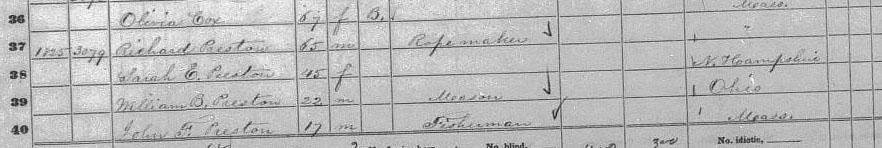 36 Olivia Cox 67 f B. Mass.
37 1825 3079 Richard Preston 65 m Ropemaker "
38 Sarah E. Preston 45 f N. Hampshire
39 William B. Preston 22 m Meason Ohio
40 John F. Preston 17 m Fisherman Mass.
No. blind, No. idiotic,